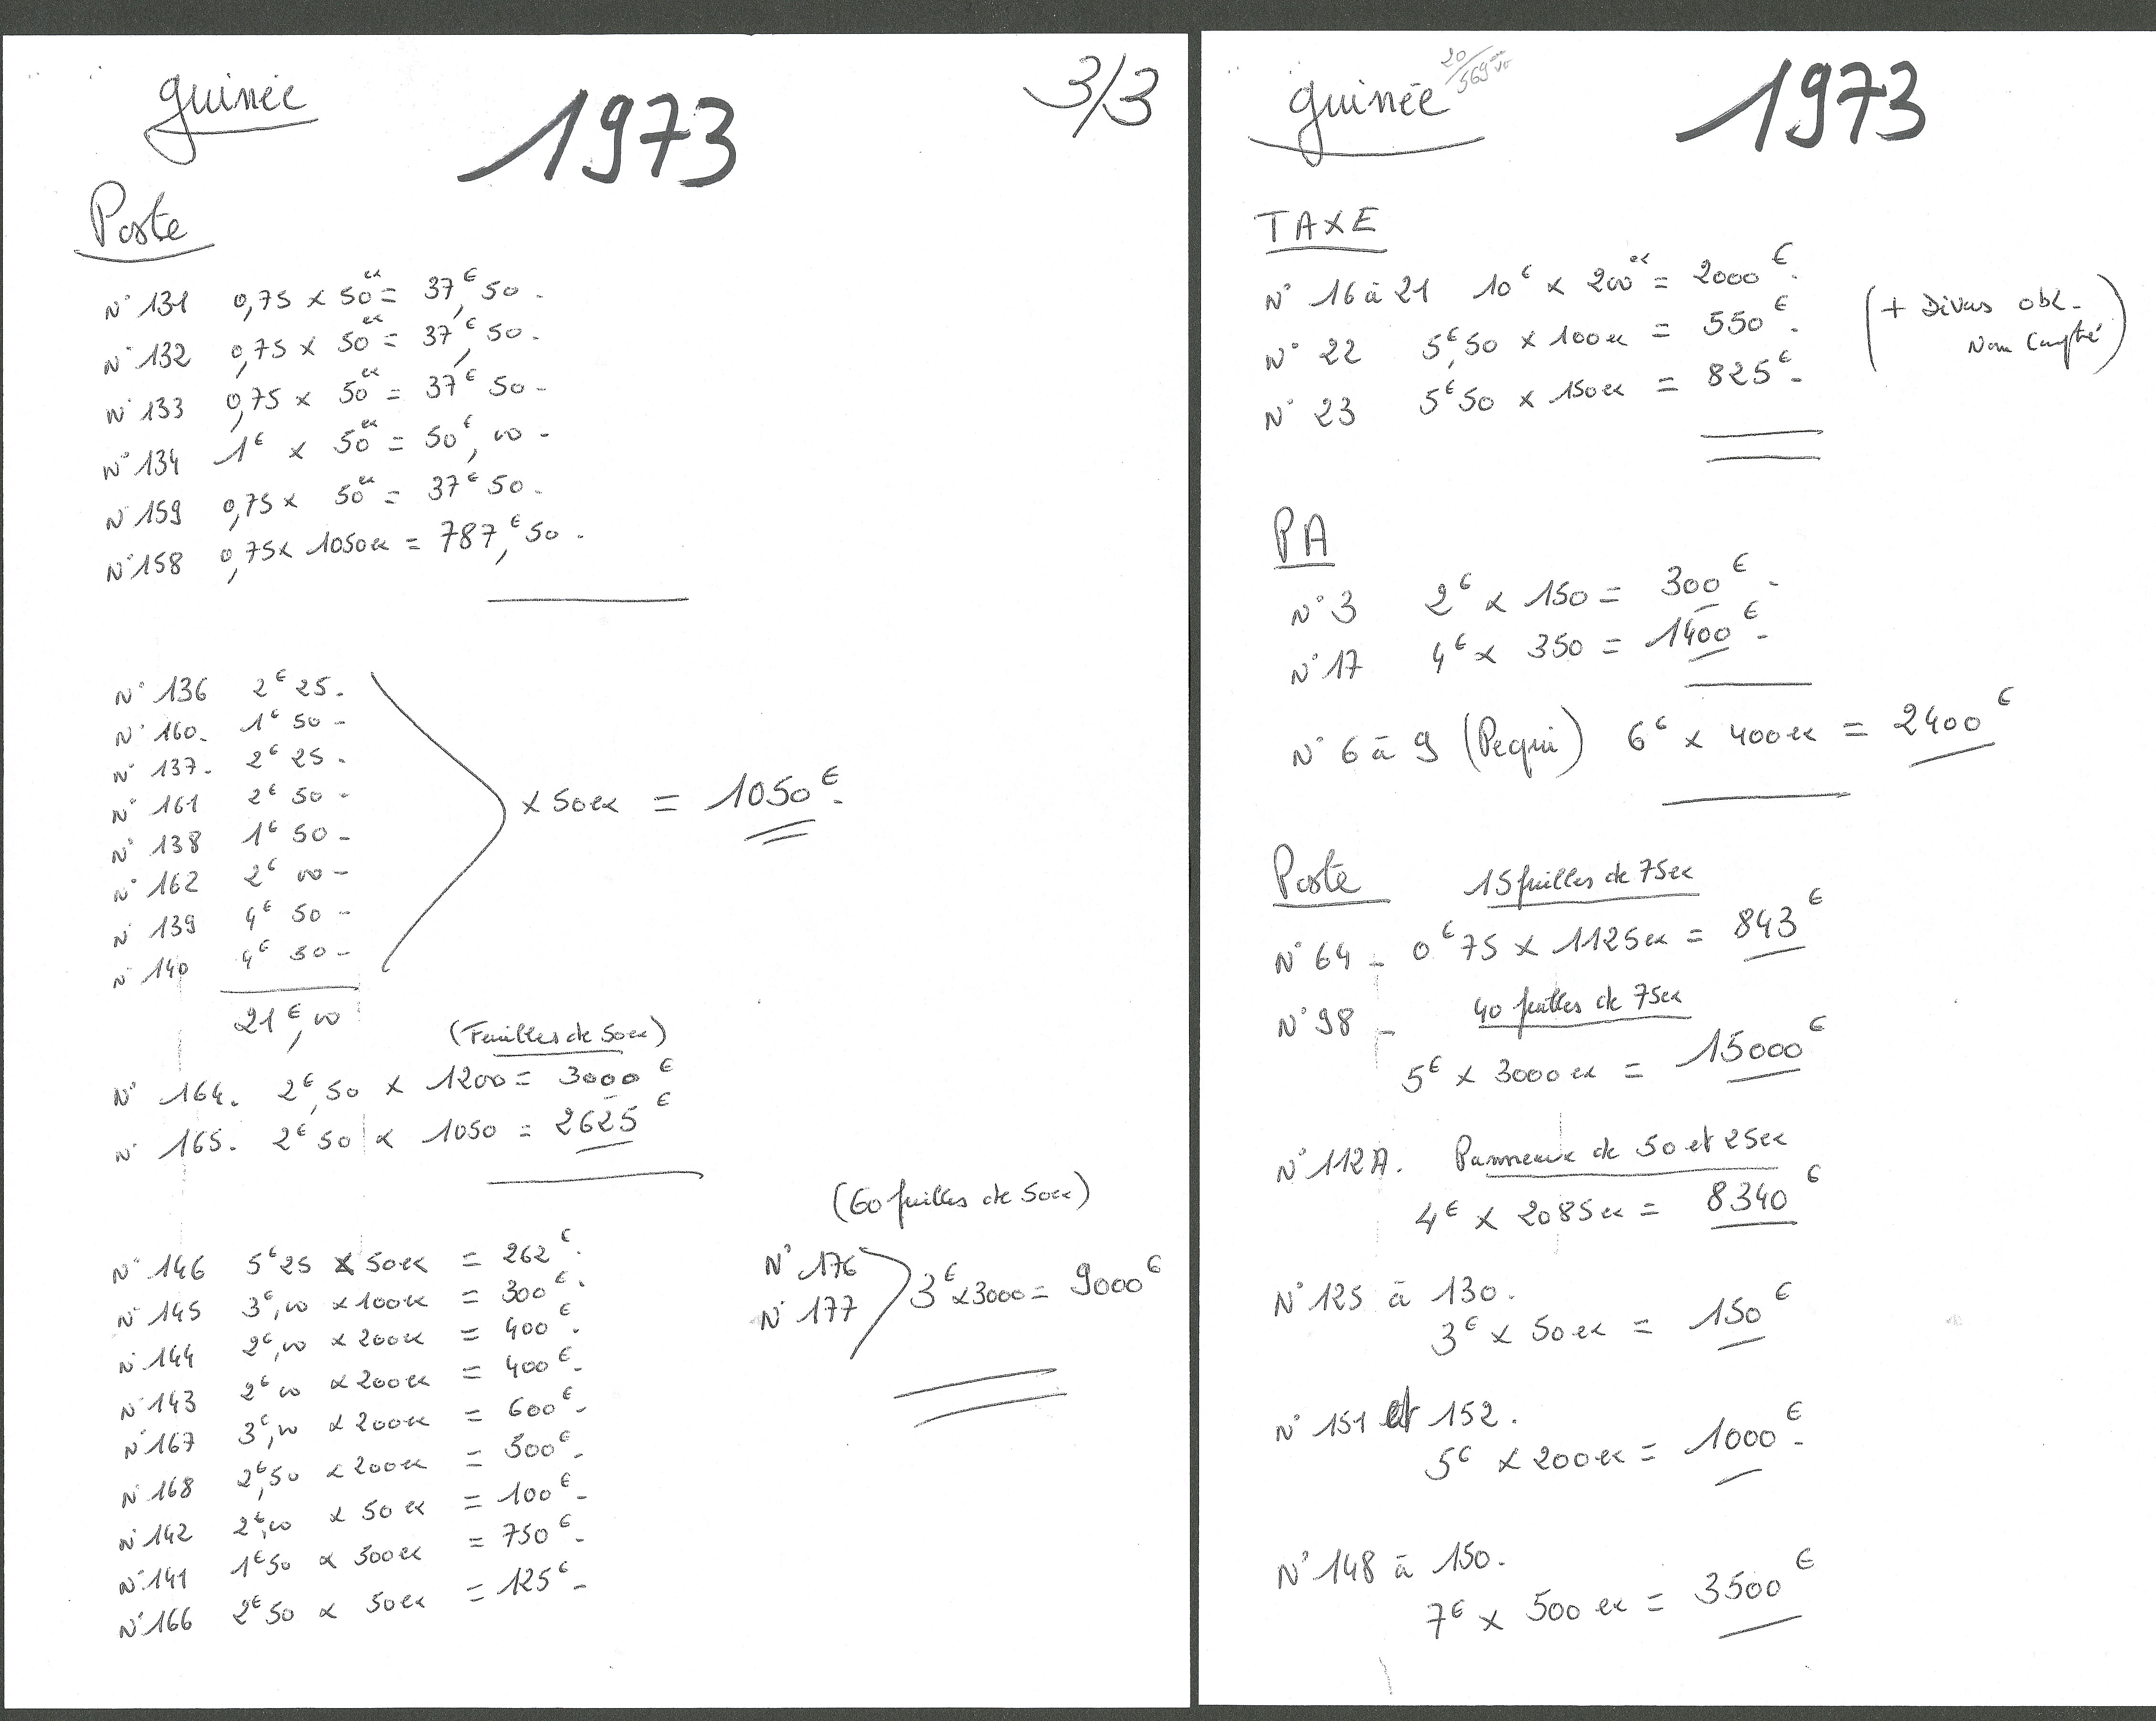 Guinée
1973
3/3
Poste
N° 131 0,75 x 50ex = 37,€50.
N° 132 0,75 x 50ex = 37,€50.
N° 133 0,75 x 50ex = 37€50-
N° 134 1€ x 50ex = 50€,00-
N° 159 0,75 x 50ex = 37€50.
N° 158 0,75 x 1050ex = 787,€50.
N° 136 2€25.
N° 160. 1€50-
N° 137. 2€25.
N° 161 2€50-
N° 138 1€50-
N° 162 2€00-
N° 139 4€50-
N° 140 4€50-
x 50ex = 1050€.
21€,00
(Feuilles de 50ex)
N° 164. 2€,50 x 1200 = 3000€
N° 165. 2€50 x 1050 = 2625€
N° 146 5€25 x 50ex = 262€.
N° 145 3€,00 x 100ex = 300€.
N° 144 2€,00 x 200ex = 400€.
N° 143 2€00 x 200ex = 400€-
N° 167 3€,00 x 200ex = 600€-
N° 168 2€,50 x 200ex = 500€-
N° 142 2€,00 x 50ex = 100€-
N° 141 1€50 x 500ex = 750€-
N° 166 2€50 x 50ex = 125€-
(60 feuilles de 50ex)
N° 176
N° 177
3€ x 3000 = 9000€
Guinée
1973
TAXE
N° 16 à 21 10€ x 200ex = 2000€.
N° 22 5€,50 x 100ex = 550€.
N° 23 5€50 x 150ex = 825€-
(+ Divers obl-
Non Compté)
PA
N° 3 2€ x 150 = 300€-
N° 17 4€ x 350 = 1400€-
N° 6 à 9 (Pequi) 6€ x 400ex = 2400€
Poste
15 feuilles de 75ex
N° 64 - 0€75 x 1125ex = 843€
N° 98 - 40 feuilles de 75ex
5€ x 3000ex = 15000€
N° 112A. Panneaux de 50 et 25ex
4€ x 2085ex = 8340€
N° 125 à 130.
3€ x 50ex = 150€
N° 151 et 152.
5€ x 200ex = 1000€-
N° 148 à 150.
7€ x 500ex = 3500€